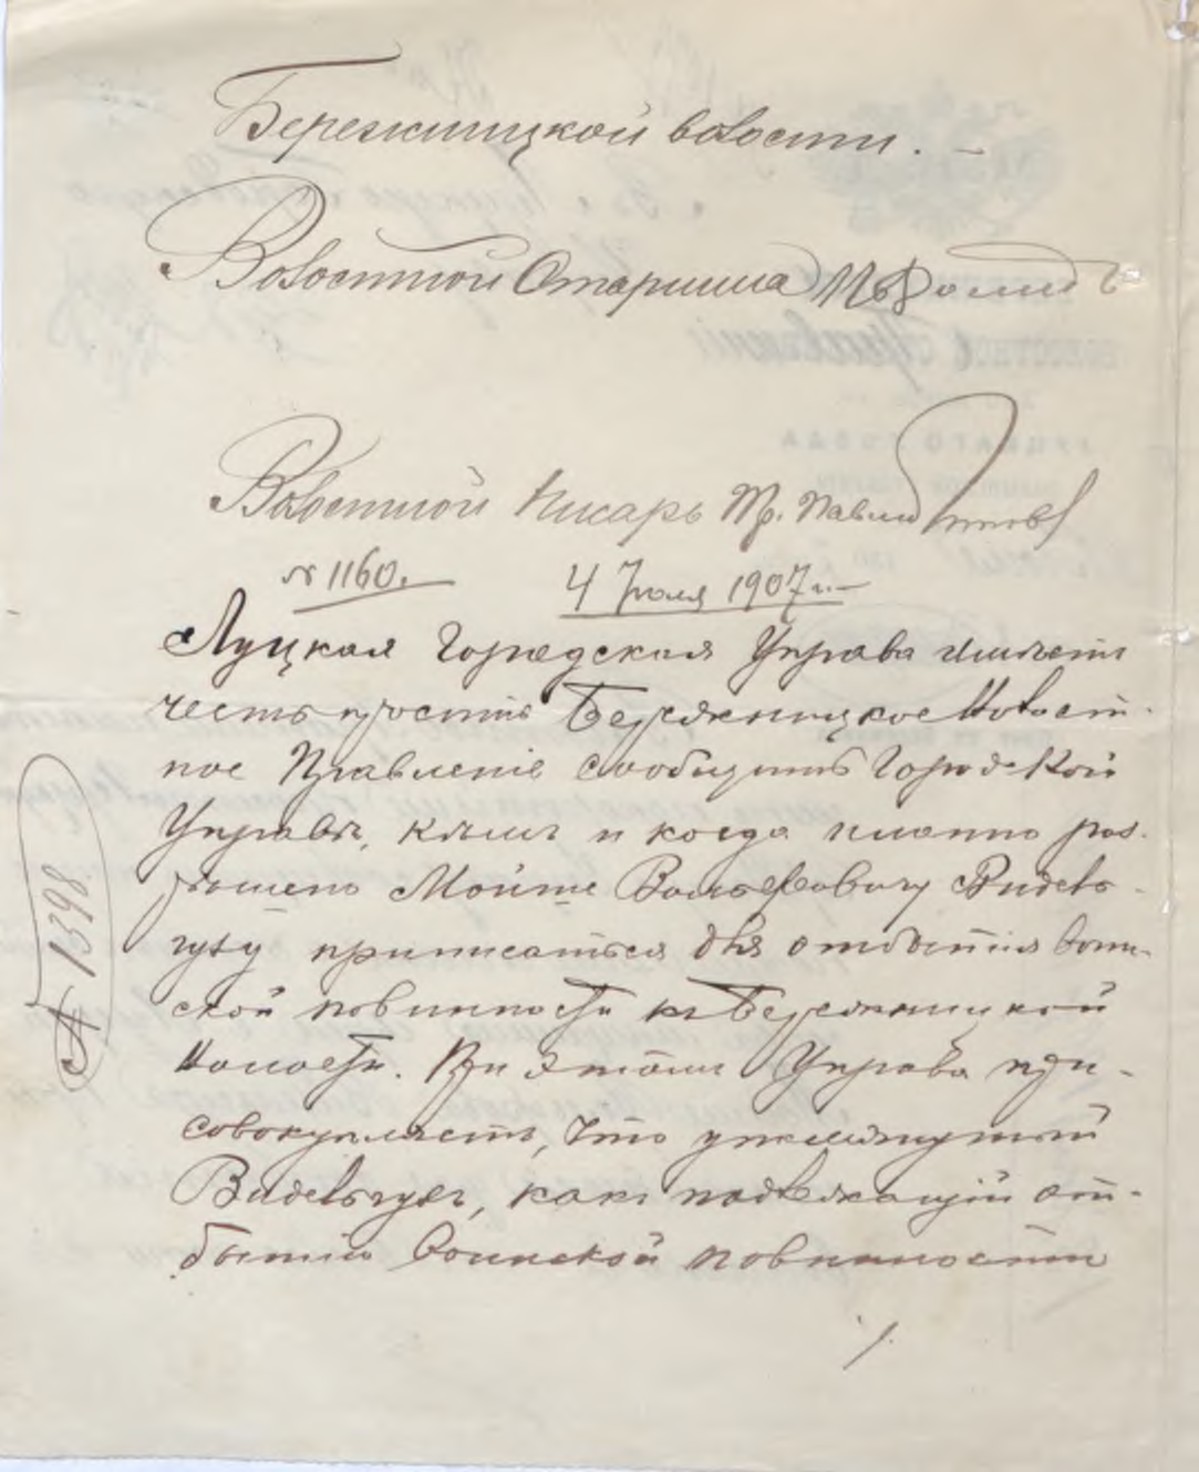 Бережницкой волости. —
Волостной Старшина
Волостной Писарь
№ 1160. 4 Июля 1907 г. —
Луцкая Городская Управа имѣетъ
честь просить Бережницкое Волост-
ное Правленіе сообщить Городской
Управѣ, кѣмъ и когда именно раз-
рѣшено Мойше Вольфовичу
приписаться для отбытія воин-
ской повинности къ Бережницкой
Волости. При этомъ Управа при-
совокупляетъ, что упомянутый
какъ подлежащій от-
бытію воинской повинности
./.
№ 1398